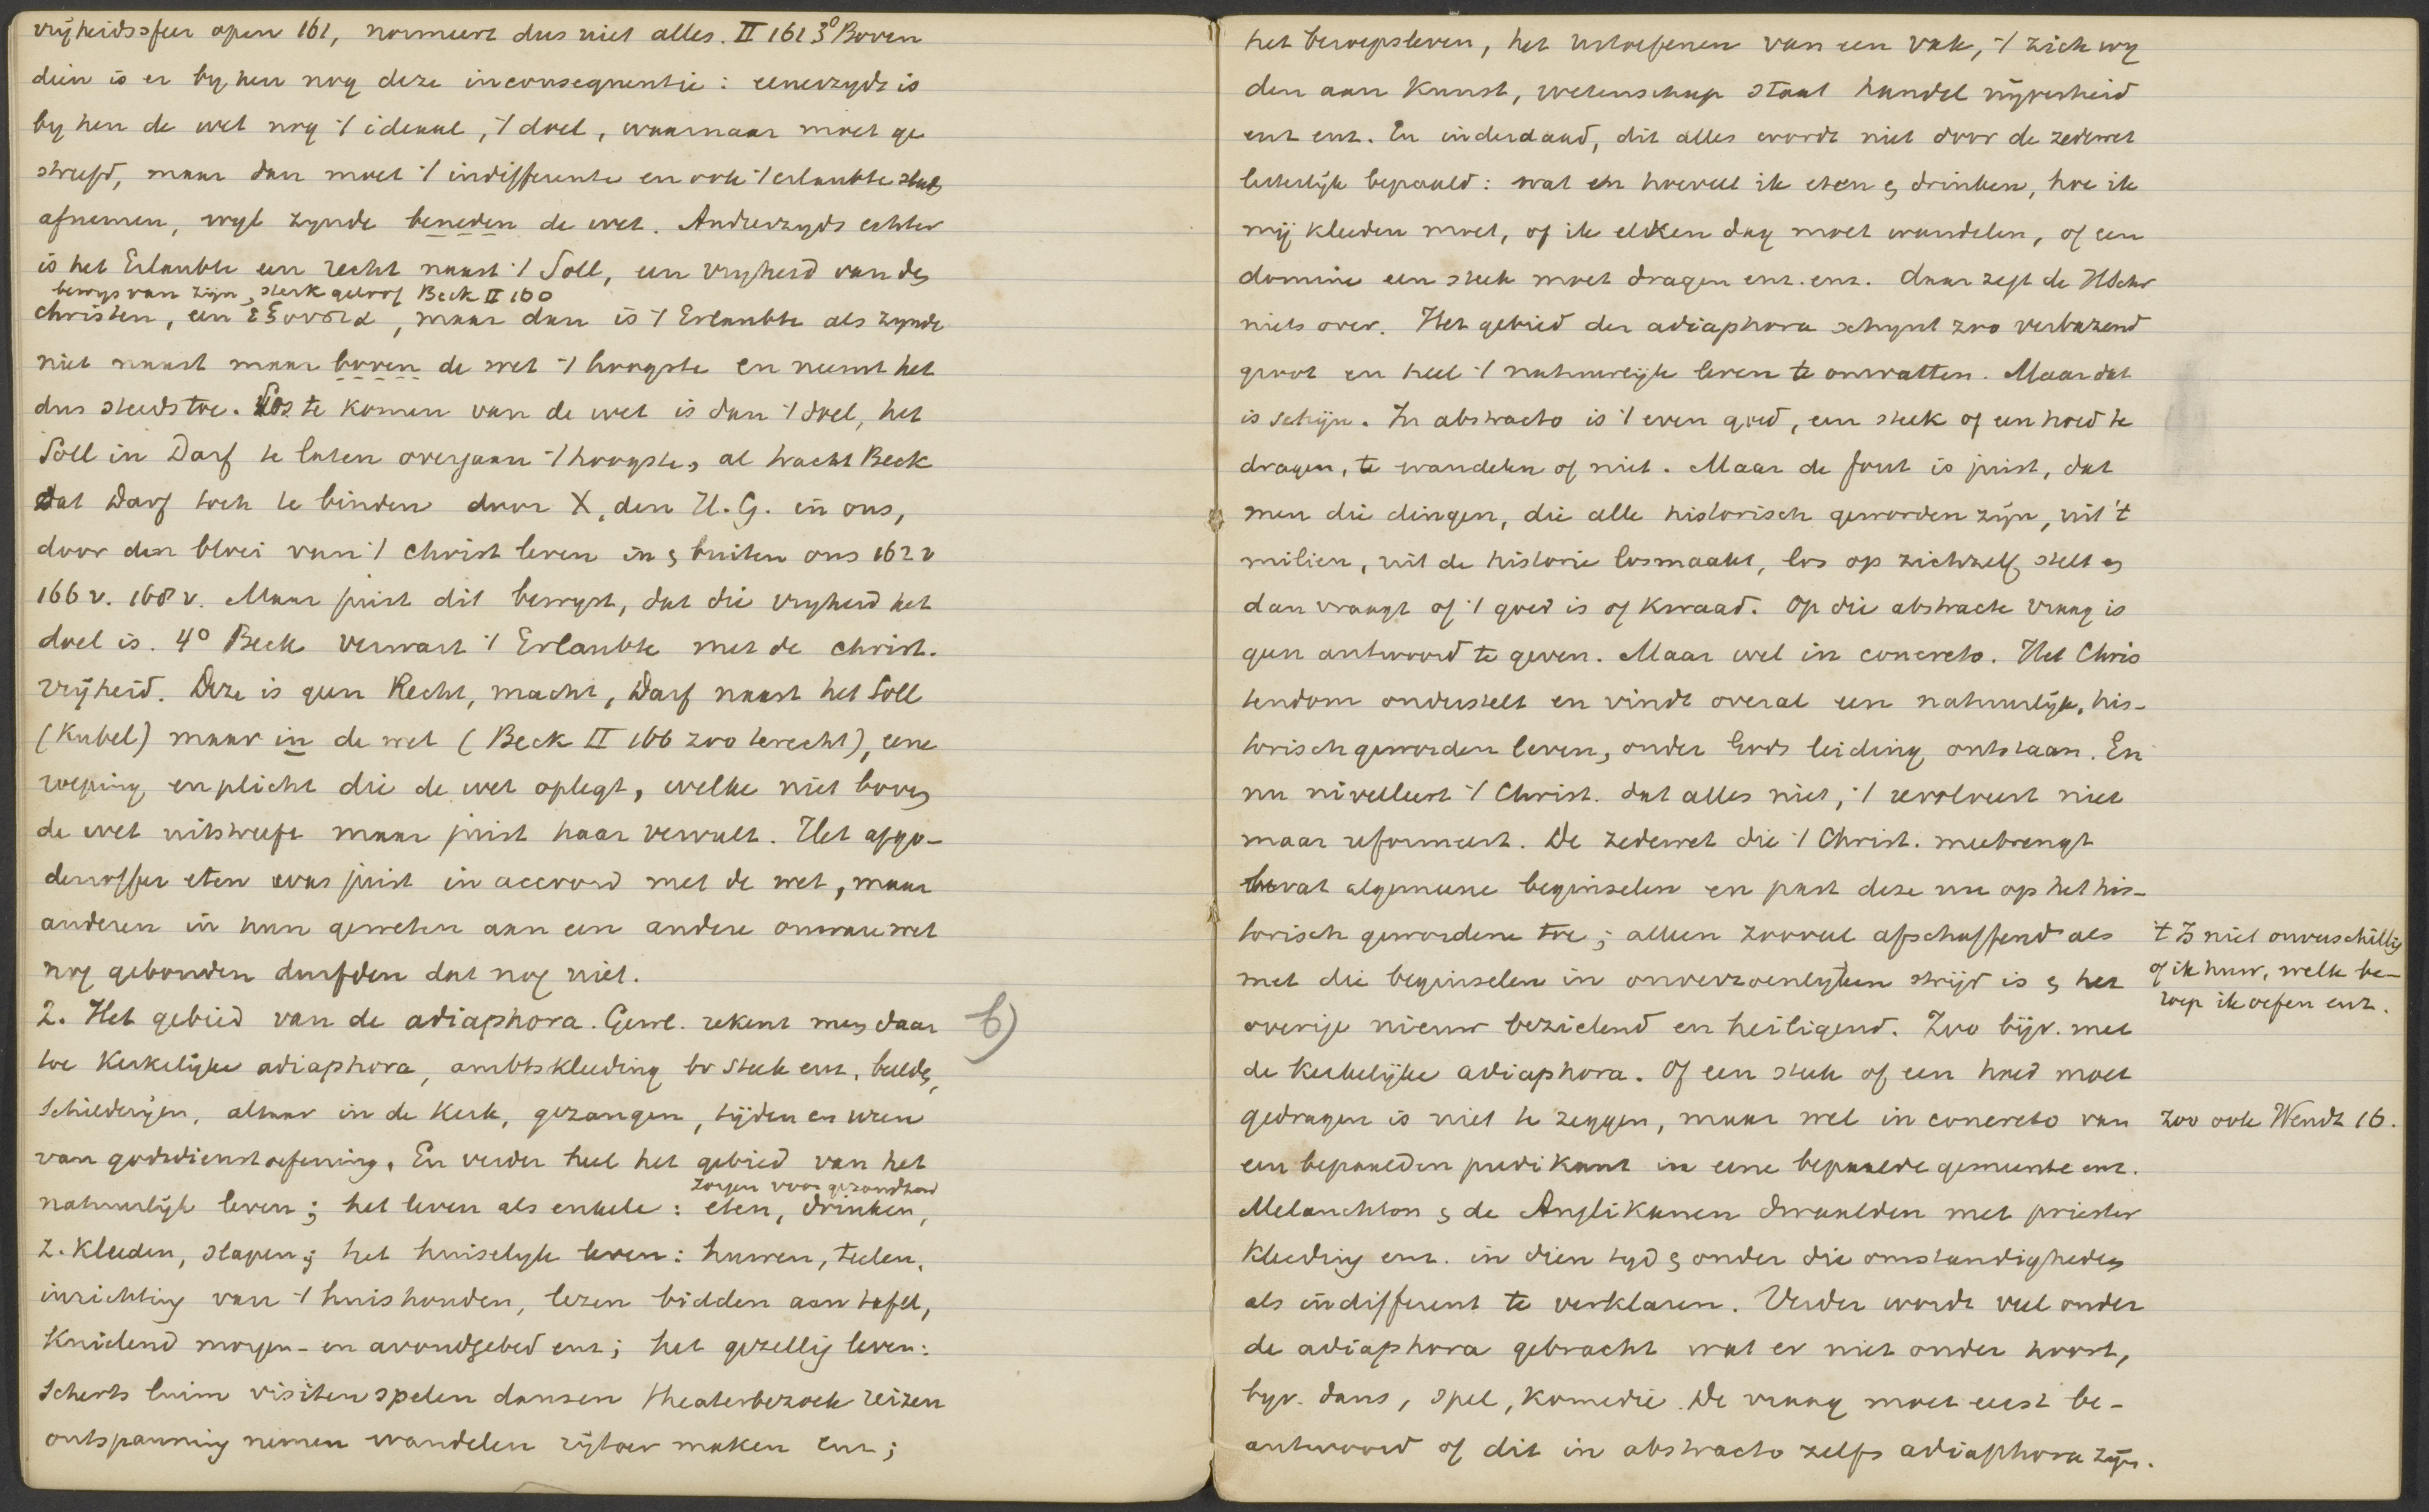 vrijheidssfeer open 161, normeert dus niet alles. II 161 3° Boven
dien is er by hen nog deze inconsequentie: eenerzyds is
by hen de wet nog 't ideaal, 't doel, waarnaar moet ge
streefd, maar dan moet 't indifferente en ook 't erlaubte steeds
afnemen, wyl zynde beneden de wet. Anderzyds echter
is het Erlaubte een recht naast 't Soll, een vryheid van den
bewys van zijn sterk geloof Beck II 160
christen, een ἐξουσία, maar dan is 't Erlaubte als zynde
niet naast maar boven de wet 't hoogste en neemt het
dus steeds toe. Los te komen van de wet is dan 't doel, het
Soll in Darf te laten overgaan 't hoogste, al tracht Beck
dat Darf toch te binden door X, den H.G. in ons,
door den bloei van 't christ leven in & buiten ons 162 v
166 v. 168 v. Maar juist dit bewyst, dat die vryheid het
doel is. 4° Beck verwart 't Erlaubte met de christ.
vrijheid. Deze is geen Recht, macht, Darf naast het Soll
(Kubel) maar in de wet (Beck II 166 zoo terecht), eene
roeping en plicht die de wet oplegt, welke niet boven
de wet uitstreeft maar juist haar vervult. Het afgo-
denoffer eten was juist in accoord met de wet, maar
anderen in hun geweten aan een andere onware wet
nog gebonden durfden dat nog niet.
2. Het gebied van de adiaphora. Gewl. rekent men daar b)
toe Kerkelijke adiaphora, ambtskleeding bv steek enz, beelden,
schilderijen, altaar in de Kerk, gezangen, tijden en uren
van godsdienstoefening. En verder heel het gebied van het
zorgen voor gezondheid
natuurlijk leven; het leven als enkele: eten, drinken,
z. kleeden, slapen; het huiselyk leven: huwen, teelen,
inrichting van 't huishouden, lezen bidden aan tafel,
Knielend morgen- en avondgebed enz; het gezellig leven:
Scherts luim visiten spelen dansen theaterbezoek reizen
ontspanning nemen wandelen rijtoer maken enz;
het beroepsleven, het uitoefenen van een vak, 't zich wy
den aan Kunst, wetenschap staat handel nijverheid
enz enz. En inderdaad, dit alles wordt niet door de zedewet
letterlijk bepaald: wat en hoeveel ik eten & drinken, hoe ik
mij kleeden moet, of ik elken dag moet wandelen, of een
dominé een steek moet dragen enz. enz. daar zegt de HSchr
niets over. Het gebied der adiaphora schynt zoo verbazend
groot en heel 't natuurlijk leven te omvatten. Maar dat
is schijn. In abstracto is 't even goed, een steek of een hoed te
dragen, te wandelen of niet. Maar de fout is juist, dat
men die dingen, die alle historisch geworden zijn, uit 't
milieu, uit de historie losmaakt, los op zichzelf stelt en
dan vraagt of 't goed is of kwaad. Op die abstracte vraag is
geen antwoord te geven. Maar wel in concreto. Het Chris
tendom onderstelt en vindt overal een natuurlijk, his-
torisch geworden leven, onder Gods leiding ontstaan. En
nu nivelleert 't Christ. dat alles niet, 't revolueert niet
maar reformeert. De zedewet die 't Christ. meebrengt
bevat algemeene beginselen en past deze nu op het his-
torisch gewordene toe; alleen zooveel afschaffend als
met die beginselen in onverzoenlyken strijd is & het
overige nieuw bezielend en heiligend. Zoo bijv. met
de kerkelijke adiaphora. Of een steek of een hoed moet
gedragen is niet te zeggen, maar wel in concreto van
een bepaalden predikant in eene bepaalde gemeente enz.
Melanchton & de Anglikanen dwaalden met priester
kleeding enz. in dien tyd & onder die omstandigheden
als indifferent te verklaren. Verder wordt veel onder
de adiaphora gebracht wat er niet onder hoort,
byv. dans, spel, komedie. De vraag moet eerst be-
antwoord of dit in abstracto zelfs adiaphora zijn.
't Is niet onverschillig
of ik huw, welk be-
roep ik oefen enz.
Zoo ook Wendt 16.